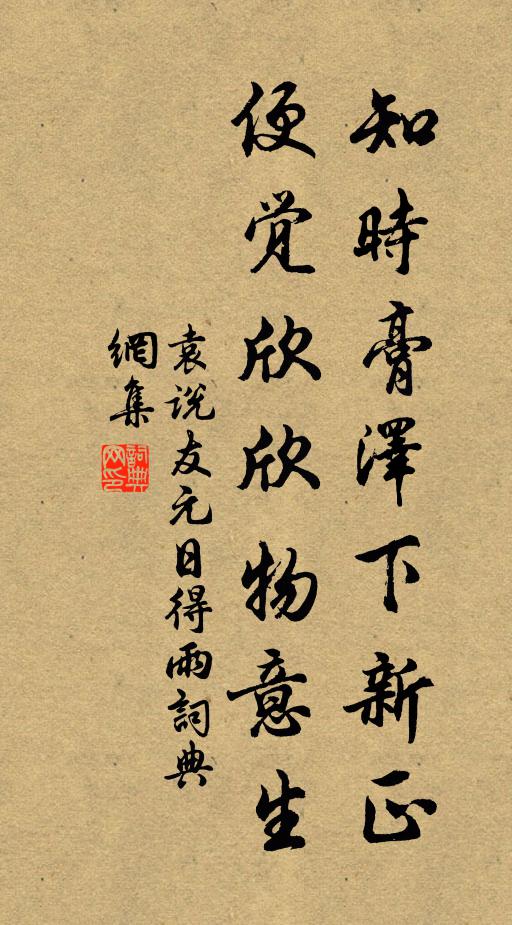 知時膏澤下新正
便覚欣欣物意生
袁説友元日得雨詞典
網集
詞典網印